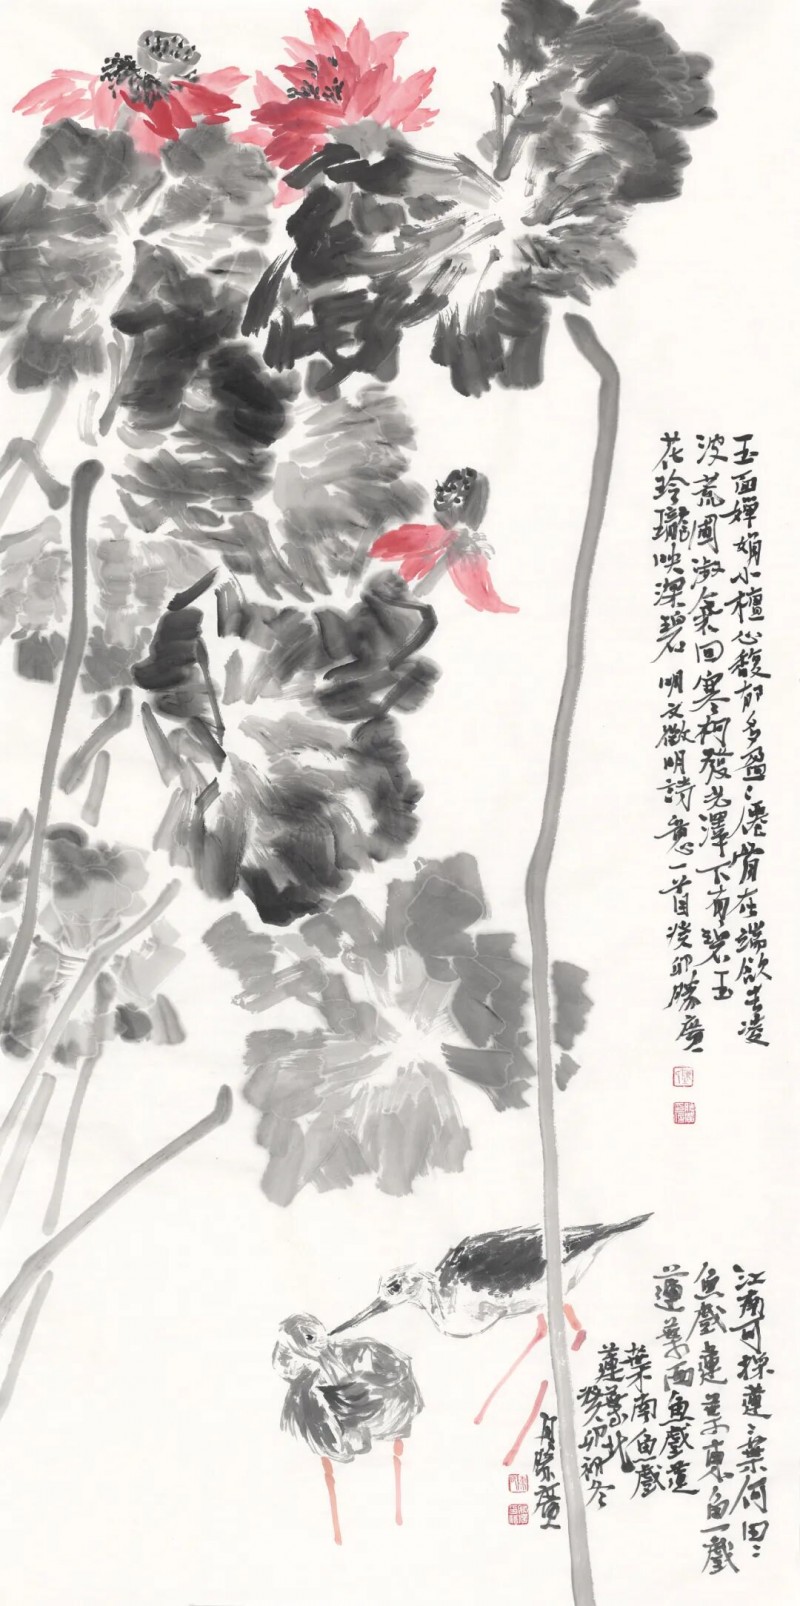 玉面婵娟小檀心馥郁多盈〻僊骨在端欲去凌
波荒圃淑氣回寒柯發光澤下有碧玉
花玲瓏映深碧 明文徵明詩意一首癸卯勝廣
江南可採蓮〻葉何田〻
魚戲蓮葉東魚戲
蓮葉西魚戲蓮
葉南魚戲
蓮葉北
癸卯初冬
勝廣